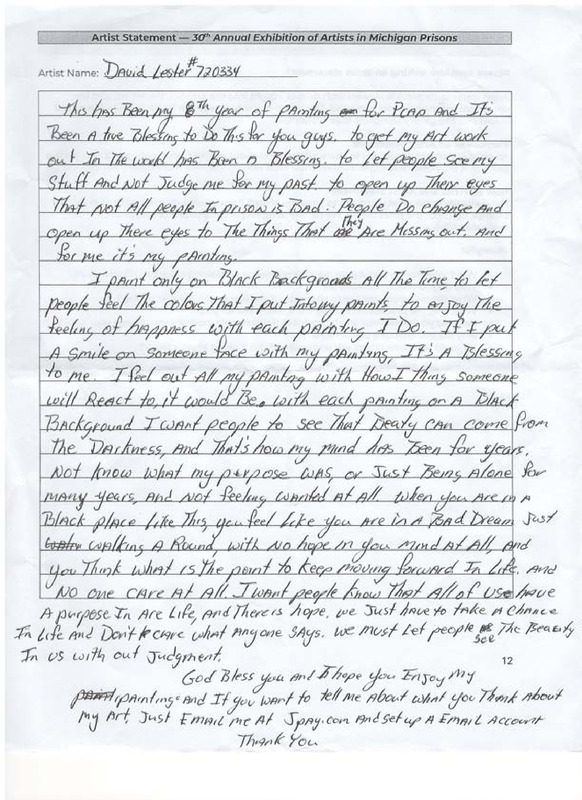 Artist Statement — 30th Annual Exhibition of Artists in Michigan Prisons
Artist Name: David Lester #720334
This has Been my 8th year of painting for Pcap And It's
Been A true Blessing to Do This for you guys. to get my Art work
out In The world has Been a Blessing. to Let people see my
Stuff And Not Judge me for my past. to open up Their eyes
That not All people In prison is Bad. People Do change And
open up There eyes to The Things That They Are Missing out. And
for me it's my painting.
I paint only on Black Backgrounds All The Time to let
people feel The colors That I put Into my paints, to enjoy The
feeling of happness with each painting I Do. If I put
A smile on someone face with my painting, It's A Blessing
to me. I feel out All my painting with How I thing someone
will React to, it would Be. with each painting on A Black
Background I want people to see That Beaty can come from
The Darkness, And That's how my mind has Been for years.
Not know what my purpose was, or Just Being Alone for
many years, And Not feeling wanted At All. when you Are in A
Black place Like This, you feel Like you Are in A Bad Dream Just
walking A Round, with No hope in you mind At All, And
you Think what is The point to keep moving forward In Life. And
No one care At All. I want people know That All of us have
A purpose In Are Life, And There is hope. we Just have to take A chance
In Life And Don't care what Anyone says. we must Let people see The Beauty
In us with out Judgment.
12
God Bless you And I hope you Enjoy My
paintings And If you want to tell me About what you Think About
my Art Just Email me At Jpay.com And set up A Email Account
Thank You